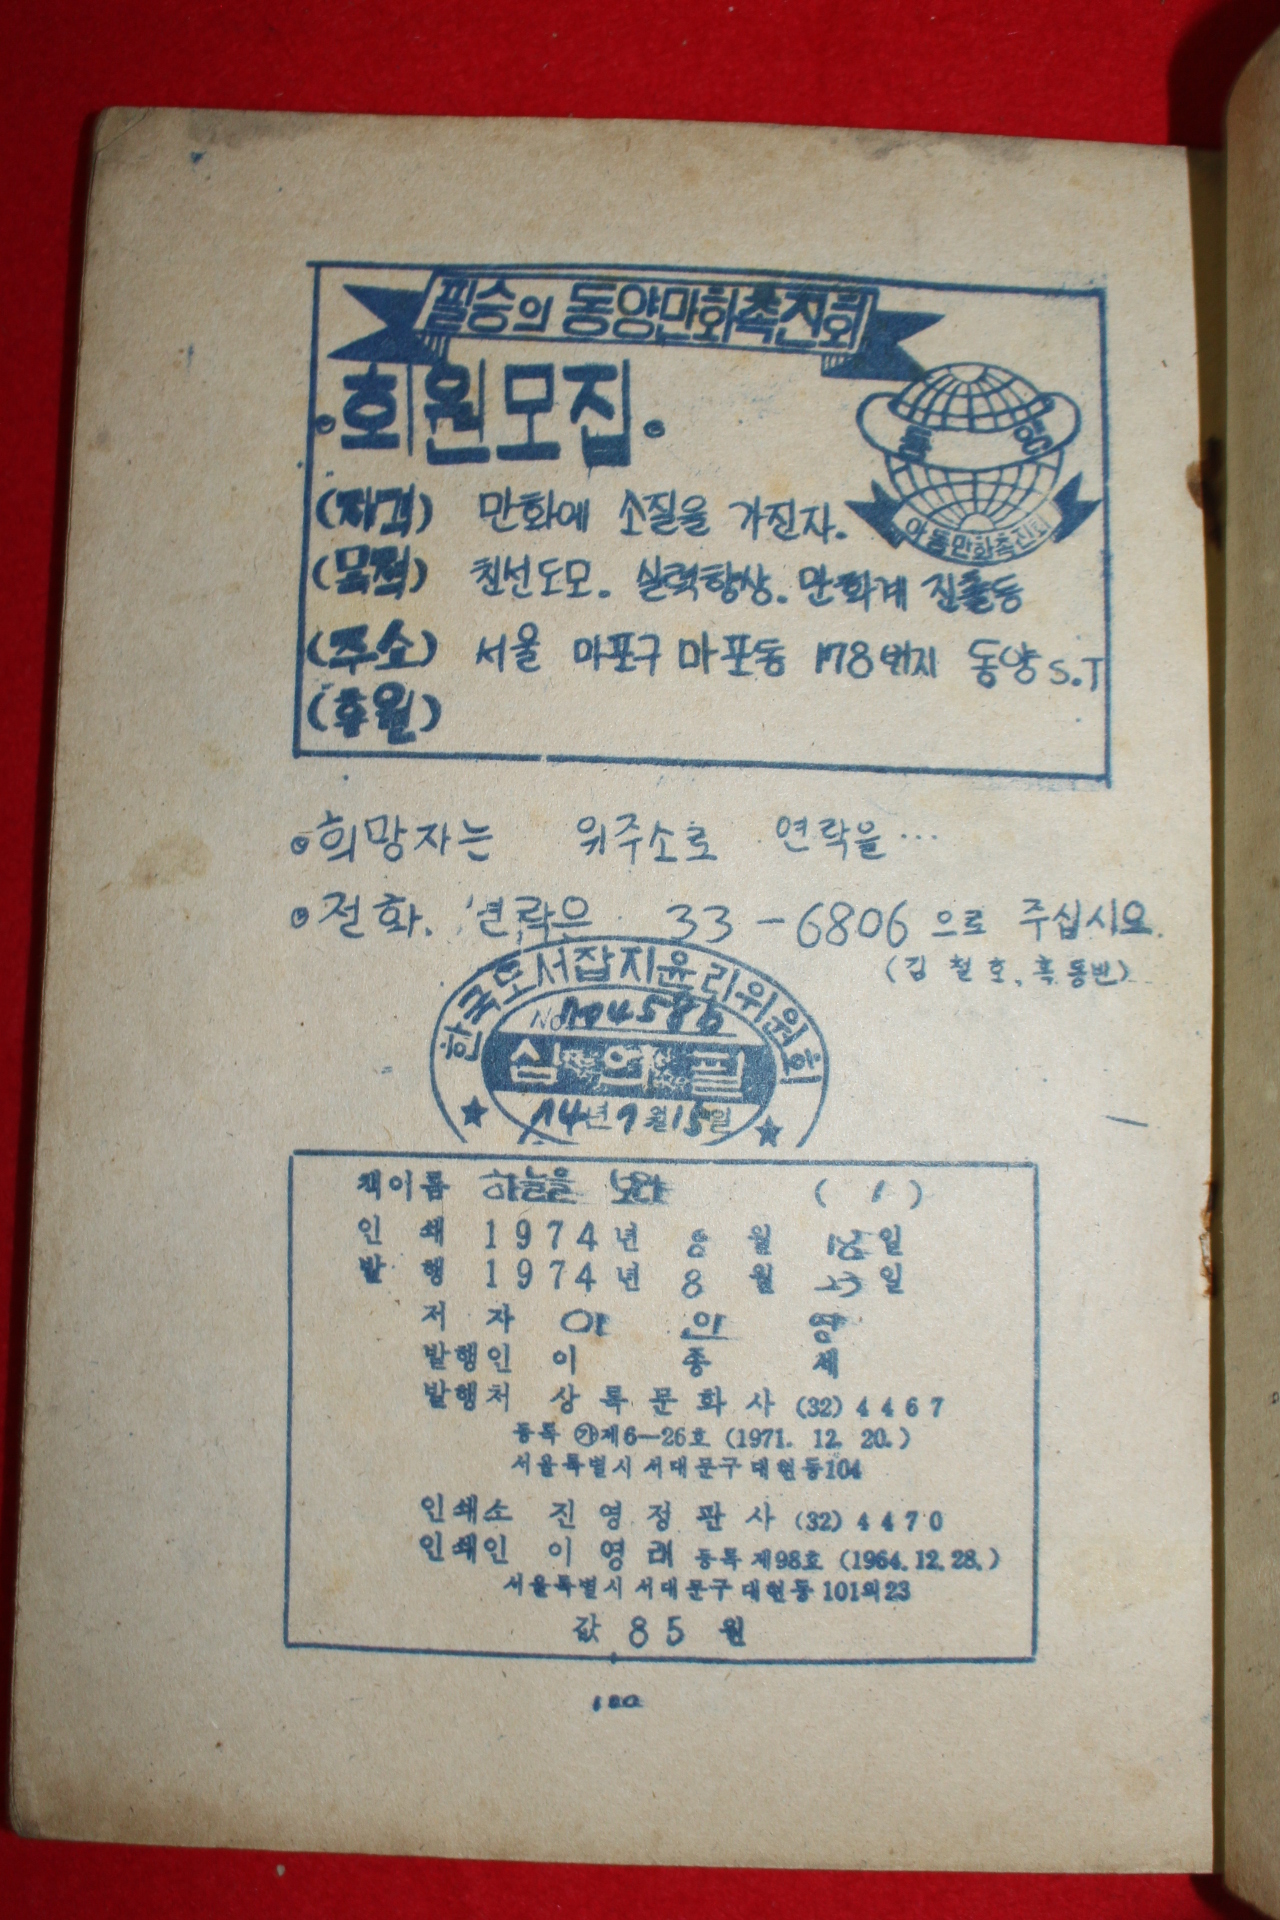 필승의 동양만화촉진회
·회원모집·
동양
아동만화촉진회
(자격) 만화에 소질을 가진자.
(목적) 친선도모. 실력향상. 만화계 진출등
(주소) 서울 마포구 마포동 178번지 동양 S.T
(후원)
·희망자는 위주소로 연락을…
·전화. 연락은 33-6806 으로 주십시요.
(김철호, 흑동반)
한국도서잡지윤리위원회
No
심의필
74년 7월 15일
책이름 하늘을 보라 (1)
인쇄 1974년 8월 18일
발행 1974년 8월 23일
저자
발행인 이종세
발행처 상록문화사 (32) 4467
등록 ㉮제6—26호 (1971. 12. 20.)
서울특별시 서대문구 대현동104
인쇄소 진영정판사 (32) 4470
인쇄인 이영래 등록 제98호 (1964. 12. 28.)
서울특별시 서대문구 대현동 101의23
값 85 원